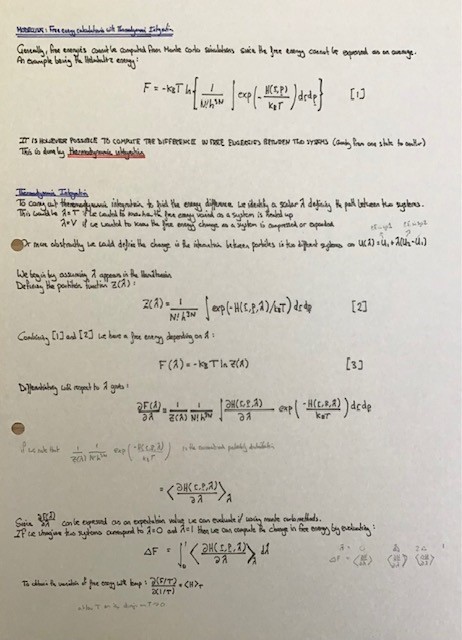 MODELLING: Free energy calculations with Thermodynamic Integration
Generally, free energies cannot be computed from Monte Carlo simulations since the free energy cannot be expressed as an average.
An example being the Helmholtz energy:
F = -k_BT ln { 1/(N!h^3N) ∫ exp( - H(r,p)/(k_BT) ) dr dp } [1]
IT IS HOWEVER POSSIBLE TO COMPUTE THE DIFFERENCE IN FREE ENERGIES BETWEEN TWO SYSTEMS (going from one state to another)
This is done by thermodynamic integration
Thermodynamic Integration
To carry out thermodynamic integration to find the energy difference we identify a scalar λ defining the path between two systems.
This could be λ=T if we wanted to know how the free energy varied as a system is heated up
λ=V if we wanted to know the free energy change as a system is compressed or expanded
Or more abstractly we could define the change in the interaction between particles in two different systems as U(λ)=U₁+λ(U₂-U₁)
We begin by assuming λ appears in the Hamiltonian
Defining the partition function Z(λ):
Z(λ) = 1/(N!h^3N) ∫ exp(-H(r,p,λ)/k_BT) dr dp [2]
Combining [1] and [2] we have a free energy depending on λ:
F(λ) = -k_BT ln Z(λ) [3]
Differentiating with respect to λ gives:
∂F(λ)/∂λ = 1/Z(λ) 1/(N!h^3N) ∫ ∂H(r,p,λ)/∂λ exp( -H(r,p,λ)/(k_BT) ) dr dp
If we note that 1/Z(λ) 1/(N!h^3N) exp( -H(r,p,λ)/(k_BT) ) is the probability distribution
= ⟨ ∂H(r,p,λ)/∂λ ⟩_λ
Since ∂F(λ)/∂λ can be expressed as an expectation value we can evaluate it using monte carlo methods.
If we imagine two systems correspond to λ=0 and λ=1 then we can compute the change in free energy by evaluating:
ΔF = ∫₀¹ ⟨ ∂H(r,p,λ)/∂λ ⟩_λ dλ
To obtain the variation of free energy with temp: ∂(F/T)/∂(1/T) = ⟨H⟩_T